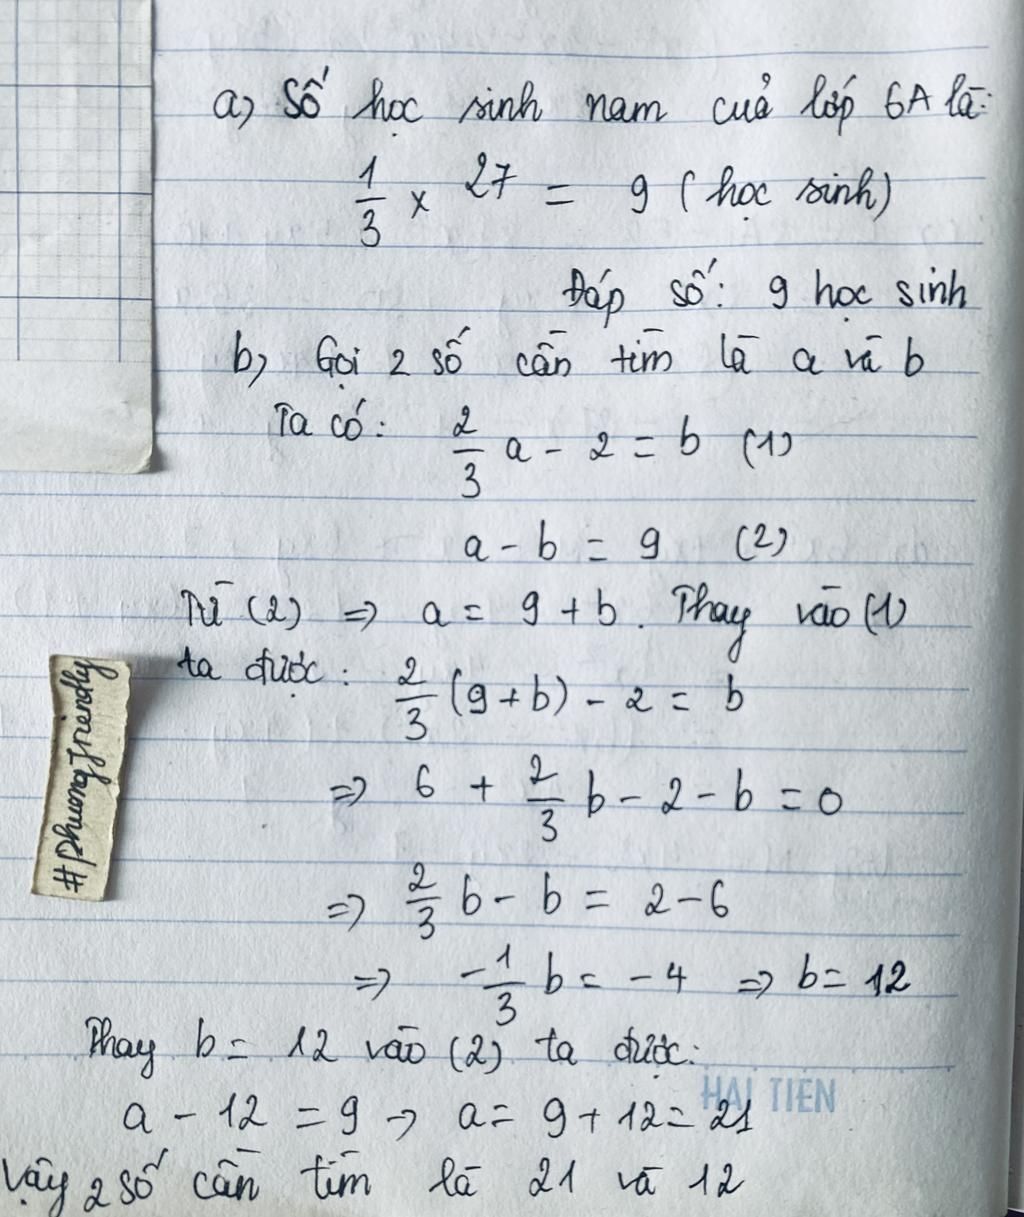 a) Số học sinh nam của lớp 6A là:
1/3 × 27 = 9 (học sinh)
Đáp số: 9 học sinh
b) Gọi 2 số cần tìm là a và b
Ta có: 2/3 a - 2 = b (1)
a - b = 9 (2)
Từ (2) => a = 9 + b. Thay vào (1)
ta được: 2/3 (9 + b) - 2 = b
=> 6 + 2/3 b - 2 - b = 0
=> 2/3 b - b = 2 - 6
=> -1/3 b = -4 => b = 12
Thay b = 12 vào (2) ta được:
a - 12 = 9 -> a = 9 + 12 = 21
Vậy 2 số cần tìm là 21 và 12
#phuongfriendly
HẢI TIẾN